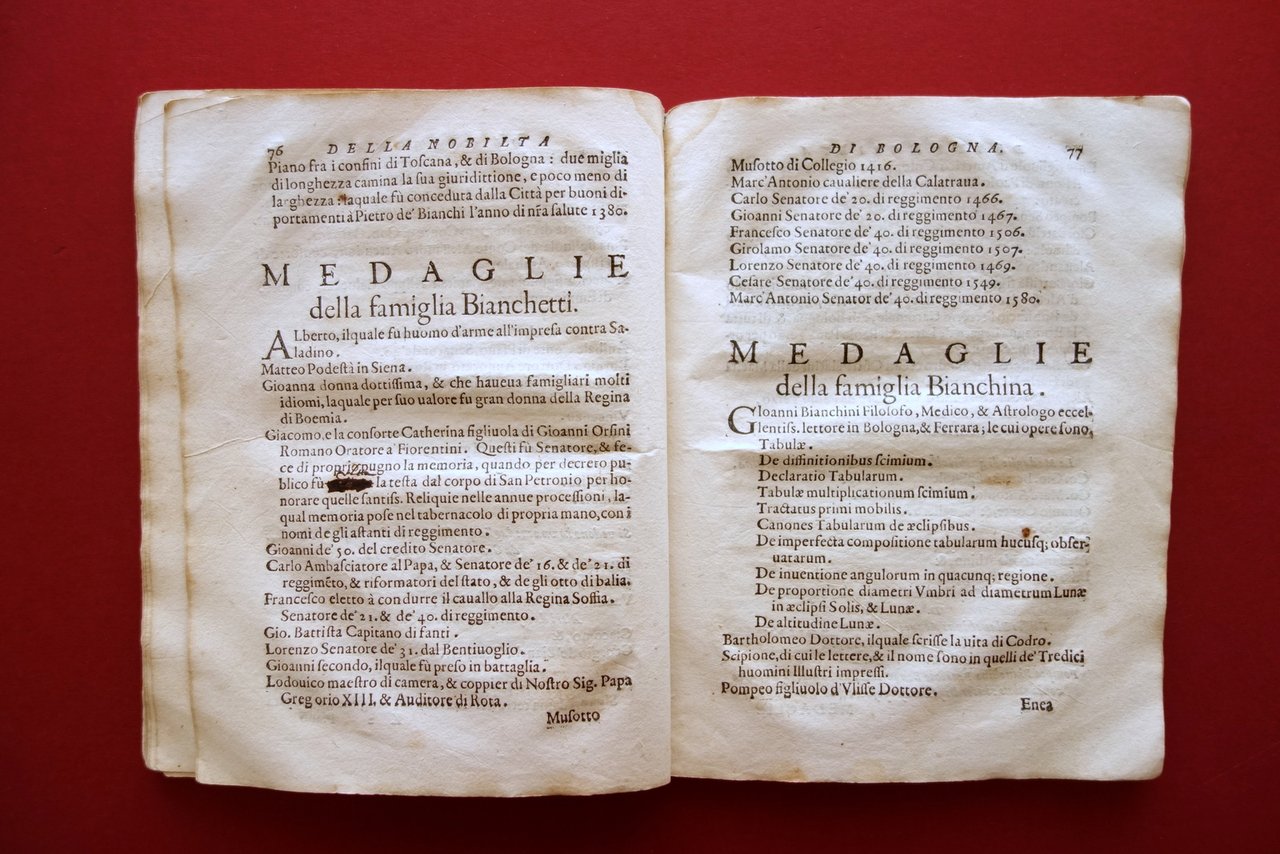 76 DELLA NOBILTA
Piano fra i confini di Toscana, & di Bologna: due miglia
di longhezza camina la sua giuridittione, e poco meno di
larghezza: laquale fù conceduta dalla Città per buoni di-
portamenti à Pietro de' Bianchi l'anno di nr̃a salute 1380.
MEDAGLIE
della famiglia Bianchetti.
ALberto, ilquale fu huomo d'arme all'impresa contra Sa-
ladino.
Matteo Podestà in Siena.
Gioanna donna dottissima, & che haueua famigliari molti
idiomi, laquale per suo ualore fu gran donna della Regina
di Boemia.
Giacomo, e la consorte Catherina figliuola di Gioanni Orsini
Romano Oratore a' Fiorentini. Questi fù Senatore, & fe-
ce di proprio pugno la memoria, quando per decreto pu-
blico fù la testa dal corpo di San Petronio per ho-
norare quelle santiss. Reliquie nelle annue processioni, la-
qual memoria pose nel tabernacolo di propria mano, con i
nomi de gli astanti di reggimento.
Gioanni de' 50. del credito Senatore.
Carlo Ambasciatore al Papa, & Senatore de' 16. & de' 21. di
reggimẽto, & riformatori del stato, & de gli otto di balia.
Francesco eletto à condurre il cauallo alla Regina Soffia.
Senatore de' 21. & de' 40. di reggimento.
Gio. Battista Capitano di fanti.
Lorenzo Senatore de' 31. dal Bentiuoglio.
Gioanni secondo, ilquale fù preso in battaglia.
Lodouico maestro di camera, & coppier di Nostro Sig. Papa
Gregorio XIII. & Auditore di Rota.
Musotto
DI BOLOGNA. 77
Musotto di Collegio 1416.
Marc'Antonio caualiere della Calatraua.
Carlo Senatore de' 20. di reggimento 1466.
Gioanni Senatore de' 20. di reggimento 1467.
Francesco Senatore de' 40. di reggimento 1506.
Girolamo Senatore de' 40. di reggimento 1507.
Lorenzo Senatore de' 40. di reggimento 1469.
Cesare Senatore de' 40. di reggimento 1549.
Marc'Antonio Senator de' 40. di reggimento 1580.
MEDAGLIE
della famiglia Bianchina.
GIoanni Bianchini Filosofo, Medico, & Astrologo eccel-
lentiss. lettore in Bologna, & Ferrara; le cui opere sono,
Tabulæ.
De diffinitionibus scimium.
Declaratio Tabularum.
Tabulæ multiplicationum scimium.
Tractatus primi mobilis.
Canones Tabularum de æclipsibus.
De imperfecta compositione tabularum hucusq; obser-
uatarum.
De inuentione angulorum in quacunq; regione.
De proportione diametri Vmbri ad diametrum Lunæ
in æclipsi Solis, & Lunæ.
De altitudine Lunæ.
Bartholomeo Dottore, ilquale scrisse la uita di Codro.
Scipione, di cui le lettere, & il nome sono in quelli de' Tredici
huomini Illustri impressi.
Pompeo figliuolo d'Vlisse Dottore.
Enea